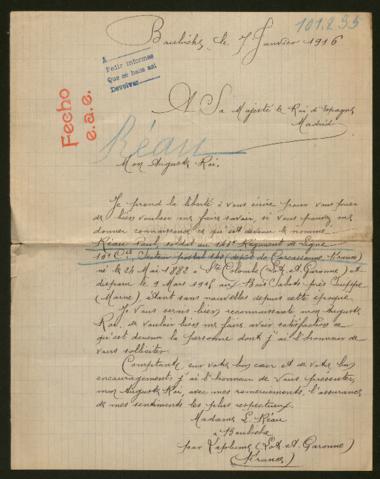 101.255
le 7 Janvier 1916
A
Pedir informes
Que se haga así
Devolver
Fecho
e.a.e.
A Sa Majesté le Roi d'Espagne
Madrid
Réau
Mon Auguste Roi.
Je prend la liberté à vous écrire pour vous prier
de bien vouloir me faire savoir, si vous pouvez me
donner connaissance ce qu'est devenu le nommé
Réau Paul, soldat au Régiment de Ligne
10e Cie Secteur postal (dépôt de Carcassonne France)
né le 24 Mai 1882 à Ste Colombe (Lot. et. Garonne) et
disparu le 9 Mars 1915 au Bois Sabot près Suippe
(Marne) étant sans nouvelles depuis cette époque
Je vous serais bien reconnaissante mon Auguste
Roi, de vouloir bien me faire avoir satisfaction ce
qu'est devenu la personne dont j'ai l'honneur de
vous solliciter.
Comptant sur votre bon cœur et de votre bon
encouragement j'ai l'honneur de vous présenter,
mon Auguste Roi, avec mes remerciements, l'assurance
de mes sentiments les plus respectueux.
Madame L. Réau
à
par Laplume (Lot. et. Garonne)
(France)